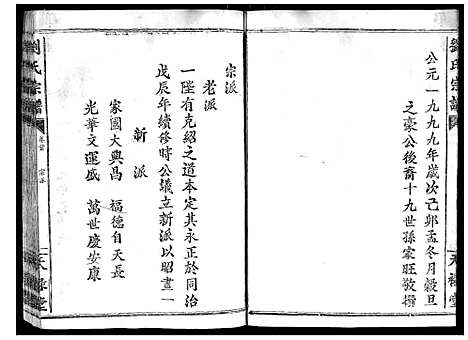 劉氏宗譜
公元一九九九年歲次己卯孟冬月穀旦
之豪公後裔十九世孫家旺敬撰
天祿堂
宗派
老派
一陞有克紹之道本定其永正於同治
戊辰年續修時公議立新派以昭畫一
新派
家國大興昌 福德自天長
光華文運盛 萬世慶安康
劉氏宗譜
卷首
宗派
天祿堂